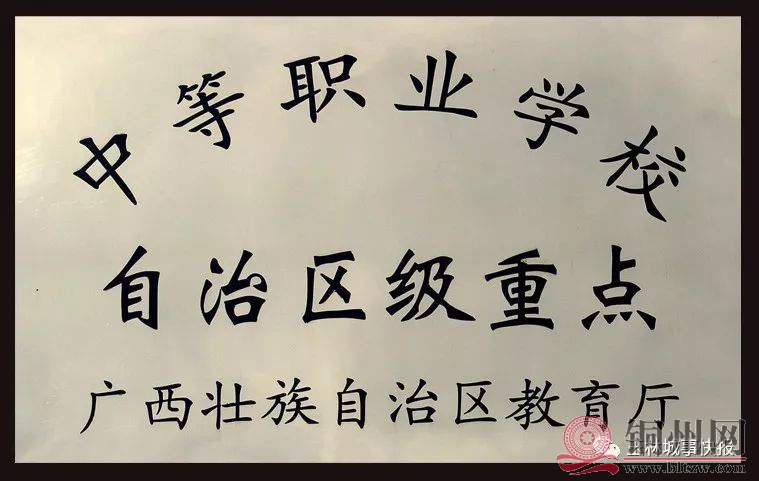 中等职业学校
自治区级重点
广西壮族自治区教育厅
铜州网
玉林城事快报
www.bltzw.com